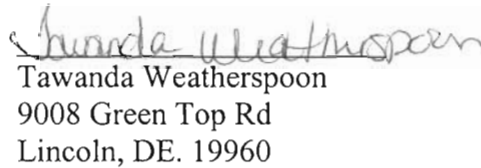 Tawanda Weatherspoon
Tawanda Weatherspoon
9008 Green Top Rd
Lincoln, DE. 19960